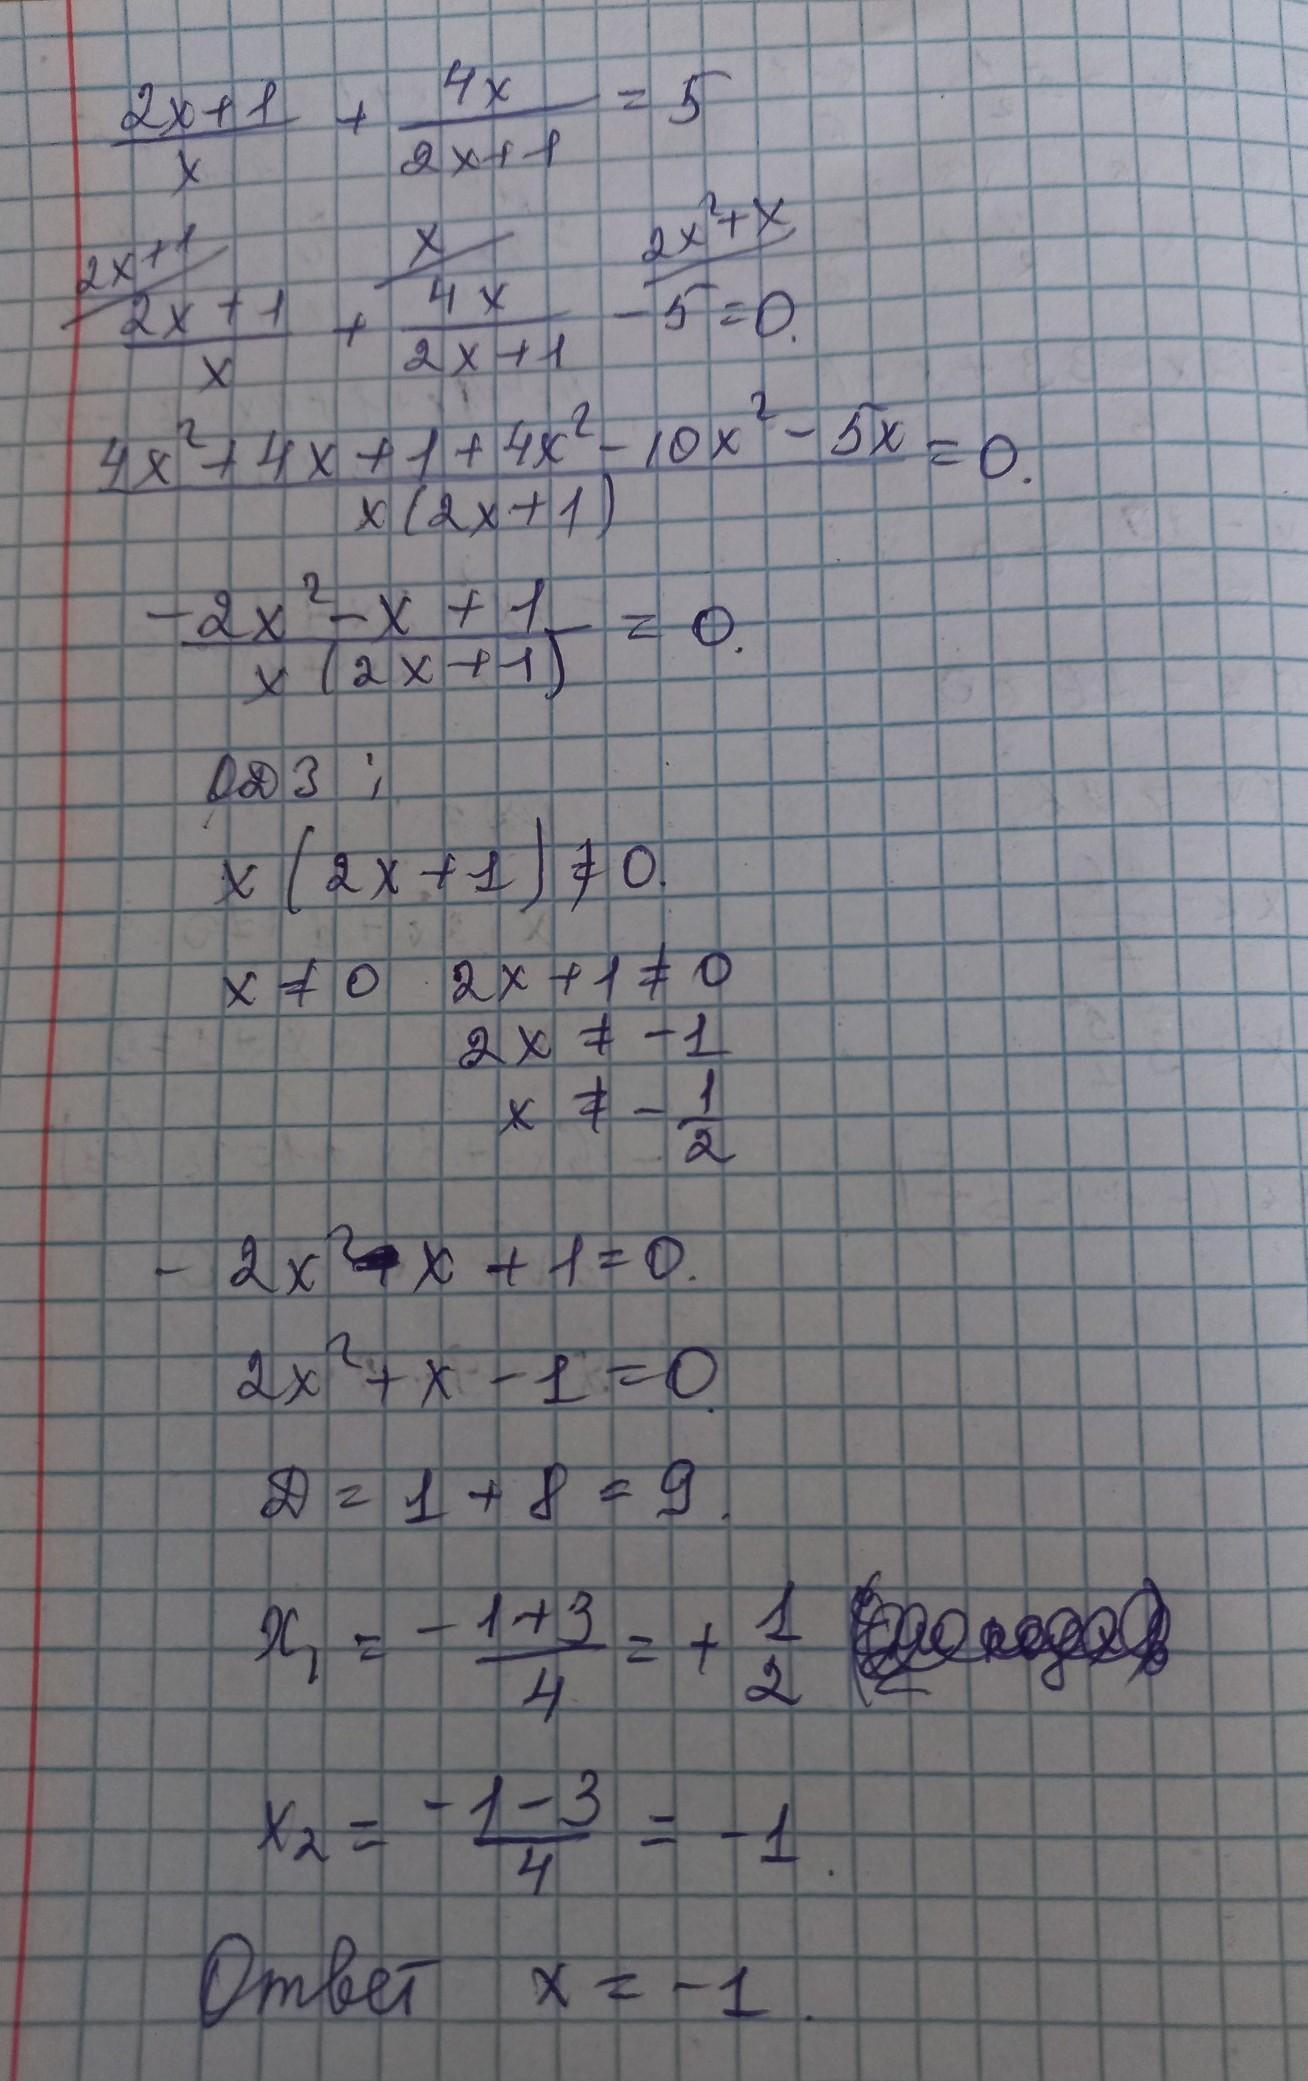 (2x+1)/x + 4x/(2x+1) = 5
2x+1/ (2x+1)/x + x/ 4x/(2x+1) - 2x²+x/ 5 = 0.
(4x²+4x+1+4x²-10x²-5x)/(x(2x+1)) = 0.
(-2x²-x+1)/(x(2x+1)) = 0.
ОДЗ:
x(2x+1)≠0.
x≠0 2x+1≠0
2x≠-1
x≠-1/2
-2x²-x+1=0.
2x²+x-1=0.
Д=1+8=9.
x₁=(-1+3)/4=+1/2
x₂=(-1-3)/4=-1.
Ответ x=-1.